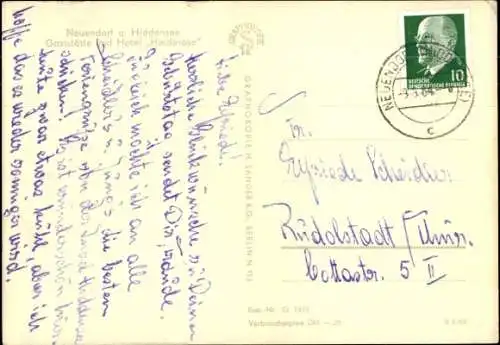 Neuendorf a. Hiddensee
Gaststätte und Hotel „Heiderose"
Liebe Elfriede!
Herzliche Glückwünsche zu Deinem
Geburtstag sendet Dir,
möchte ich an alle
die besten
Feriengrüße von der Insel Hiddensee
schicken! Es ist wunderschön hier,
heute zwar etwas kühl, aber ich
hoffe das es wieder sonniger wird.
GRAPHOKOPIE H. SANDER K.G. BERLIN N 113
NEUENDORF
c
DEUTSCHE
DEMOKRATISCHE REPUBLIK
10
Fr.
Elfriede Scheidler
Rudolstadt / Thür.
Cottastr. 5 II
Best.-Nr.
Verbraucherpreis DM —,20